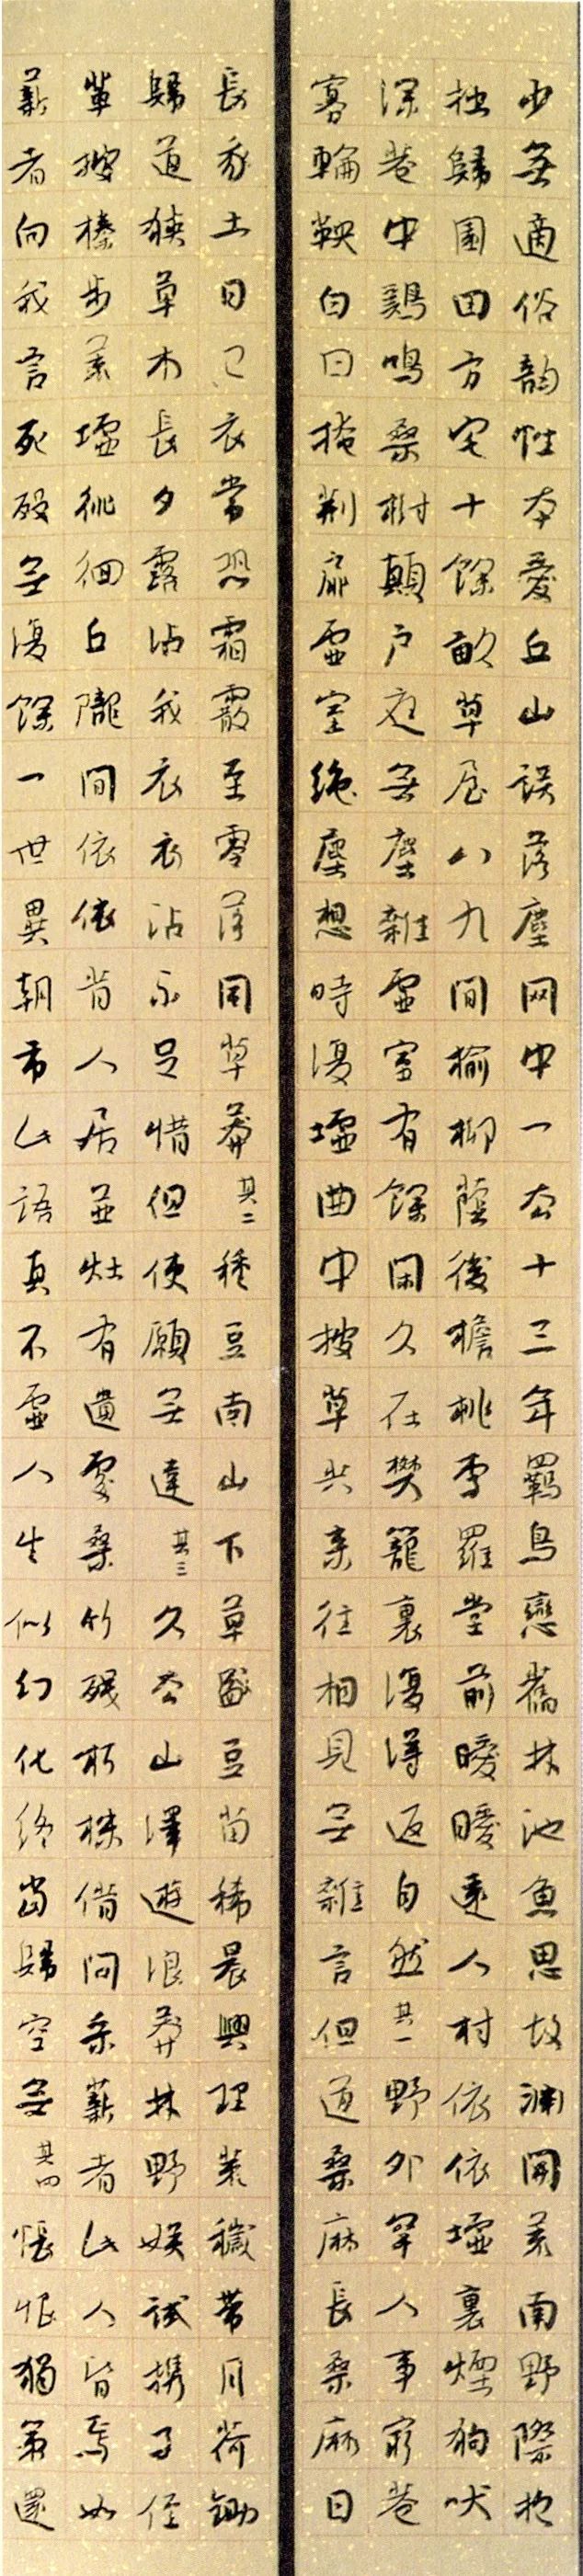 少無適俗韻性本愛丘山誤落塵网中一去十三年羈鳥戀舊林池魚思故淵開荒南野際抱
拙歸園田方宅十餘畝草屋八九間榆柳蔭後檐桃李羅堂前曖曖遠人村依依墟裏煙狗吠
深巷中鷄鳴桑樹顛戶庭無塵雜虛室有餘閑久在樊籠裏復得返自然其一野外罕人事窮巷
寡輪鞅白日掩荆扉虛室絶塵想時復墟曲中披草共來往相見無雜言但道桑麻長桑麻日
長我土日已衣常恐霜霰至零落同草莽其二種豆南山下草盛豆苗稀晨興理荒穢帶月荷鋤
歸道狹草木長夕露沾我衣衣沾不足惜但使願無違其三久去山澤遊浪莽林野娛試携子侄
輩披榛步荒墟徘徊丘隴間依依昔人居並灶有遺處桑竹殘朽株借問采薪者此人皆焉如
薪者向我言死歿無復餘一世異朝市此語真不虛人生似幻化終當歸空無其四悵恨獨策還